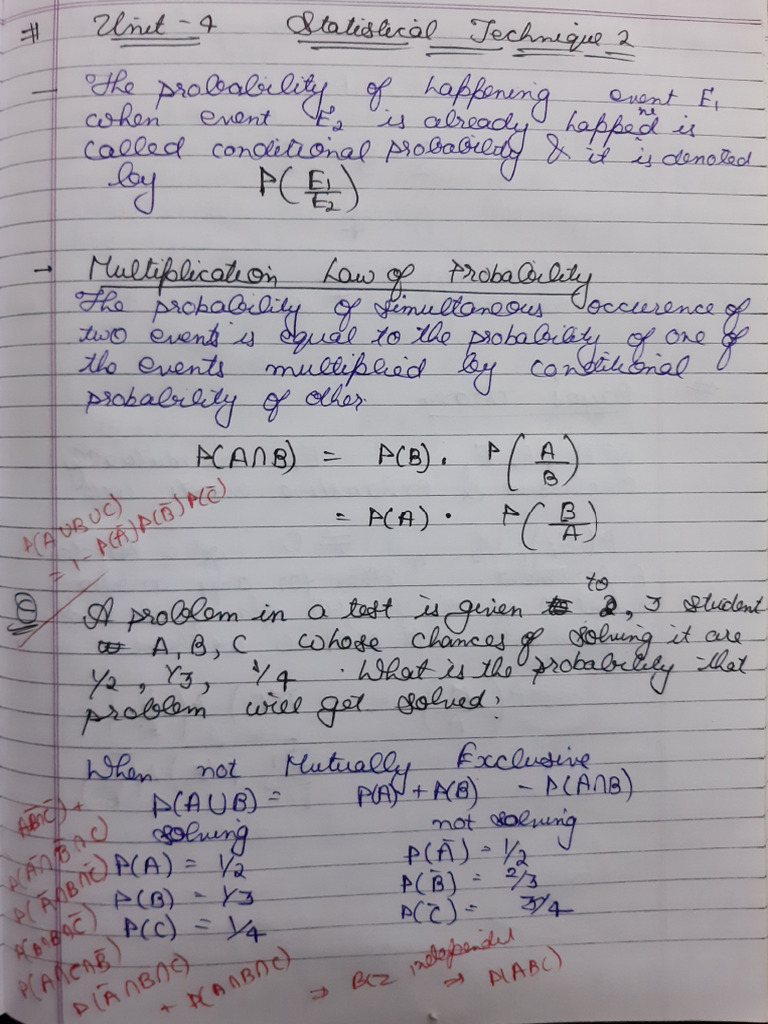 # Unit - 4 Statistical Technique 2
- The probability of happening event E1
when event E2 is already happed ne is
called conditional probability & it is denoted
by P(E1/E2)
→ Multiplication Law of Probability
The probability of simultaneous occurence of
two events is equal to the probability of one of
the events multiplied by conditional
probability of other.
P(A∩B) = P(B). P(A/B)
= P(A) · P(B/A)
P(AUBUC)
= 1- P(Ā)P(B̄)P(C̄)
Q A problem in a test is given to 3 student
A, B, C whose chances of solving it are
1/2, 1/3, 1/4. What is the probability that
problem will get solved?
When not Mutually Exclusive
P(AUB) = P(A) + P(B) - P(A∩B)
solving not solving
P(A) = 1/2 P(Ā) = 1/2
P(B) = 1/3 P(B̄) = 2/3
P(C) = 1/4 P(C̄) = 3/4
P(Ā∩B̄∩C)
P(Ā∩B∩C̄)
P(A∩C∩B̄)
P(Ā∩B∩C)
+ P(A∩B∩C) ⇒ BCZ independent → P(ABC)